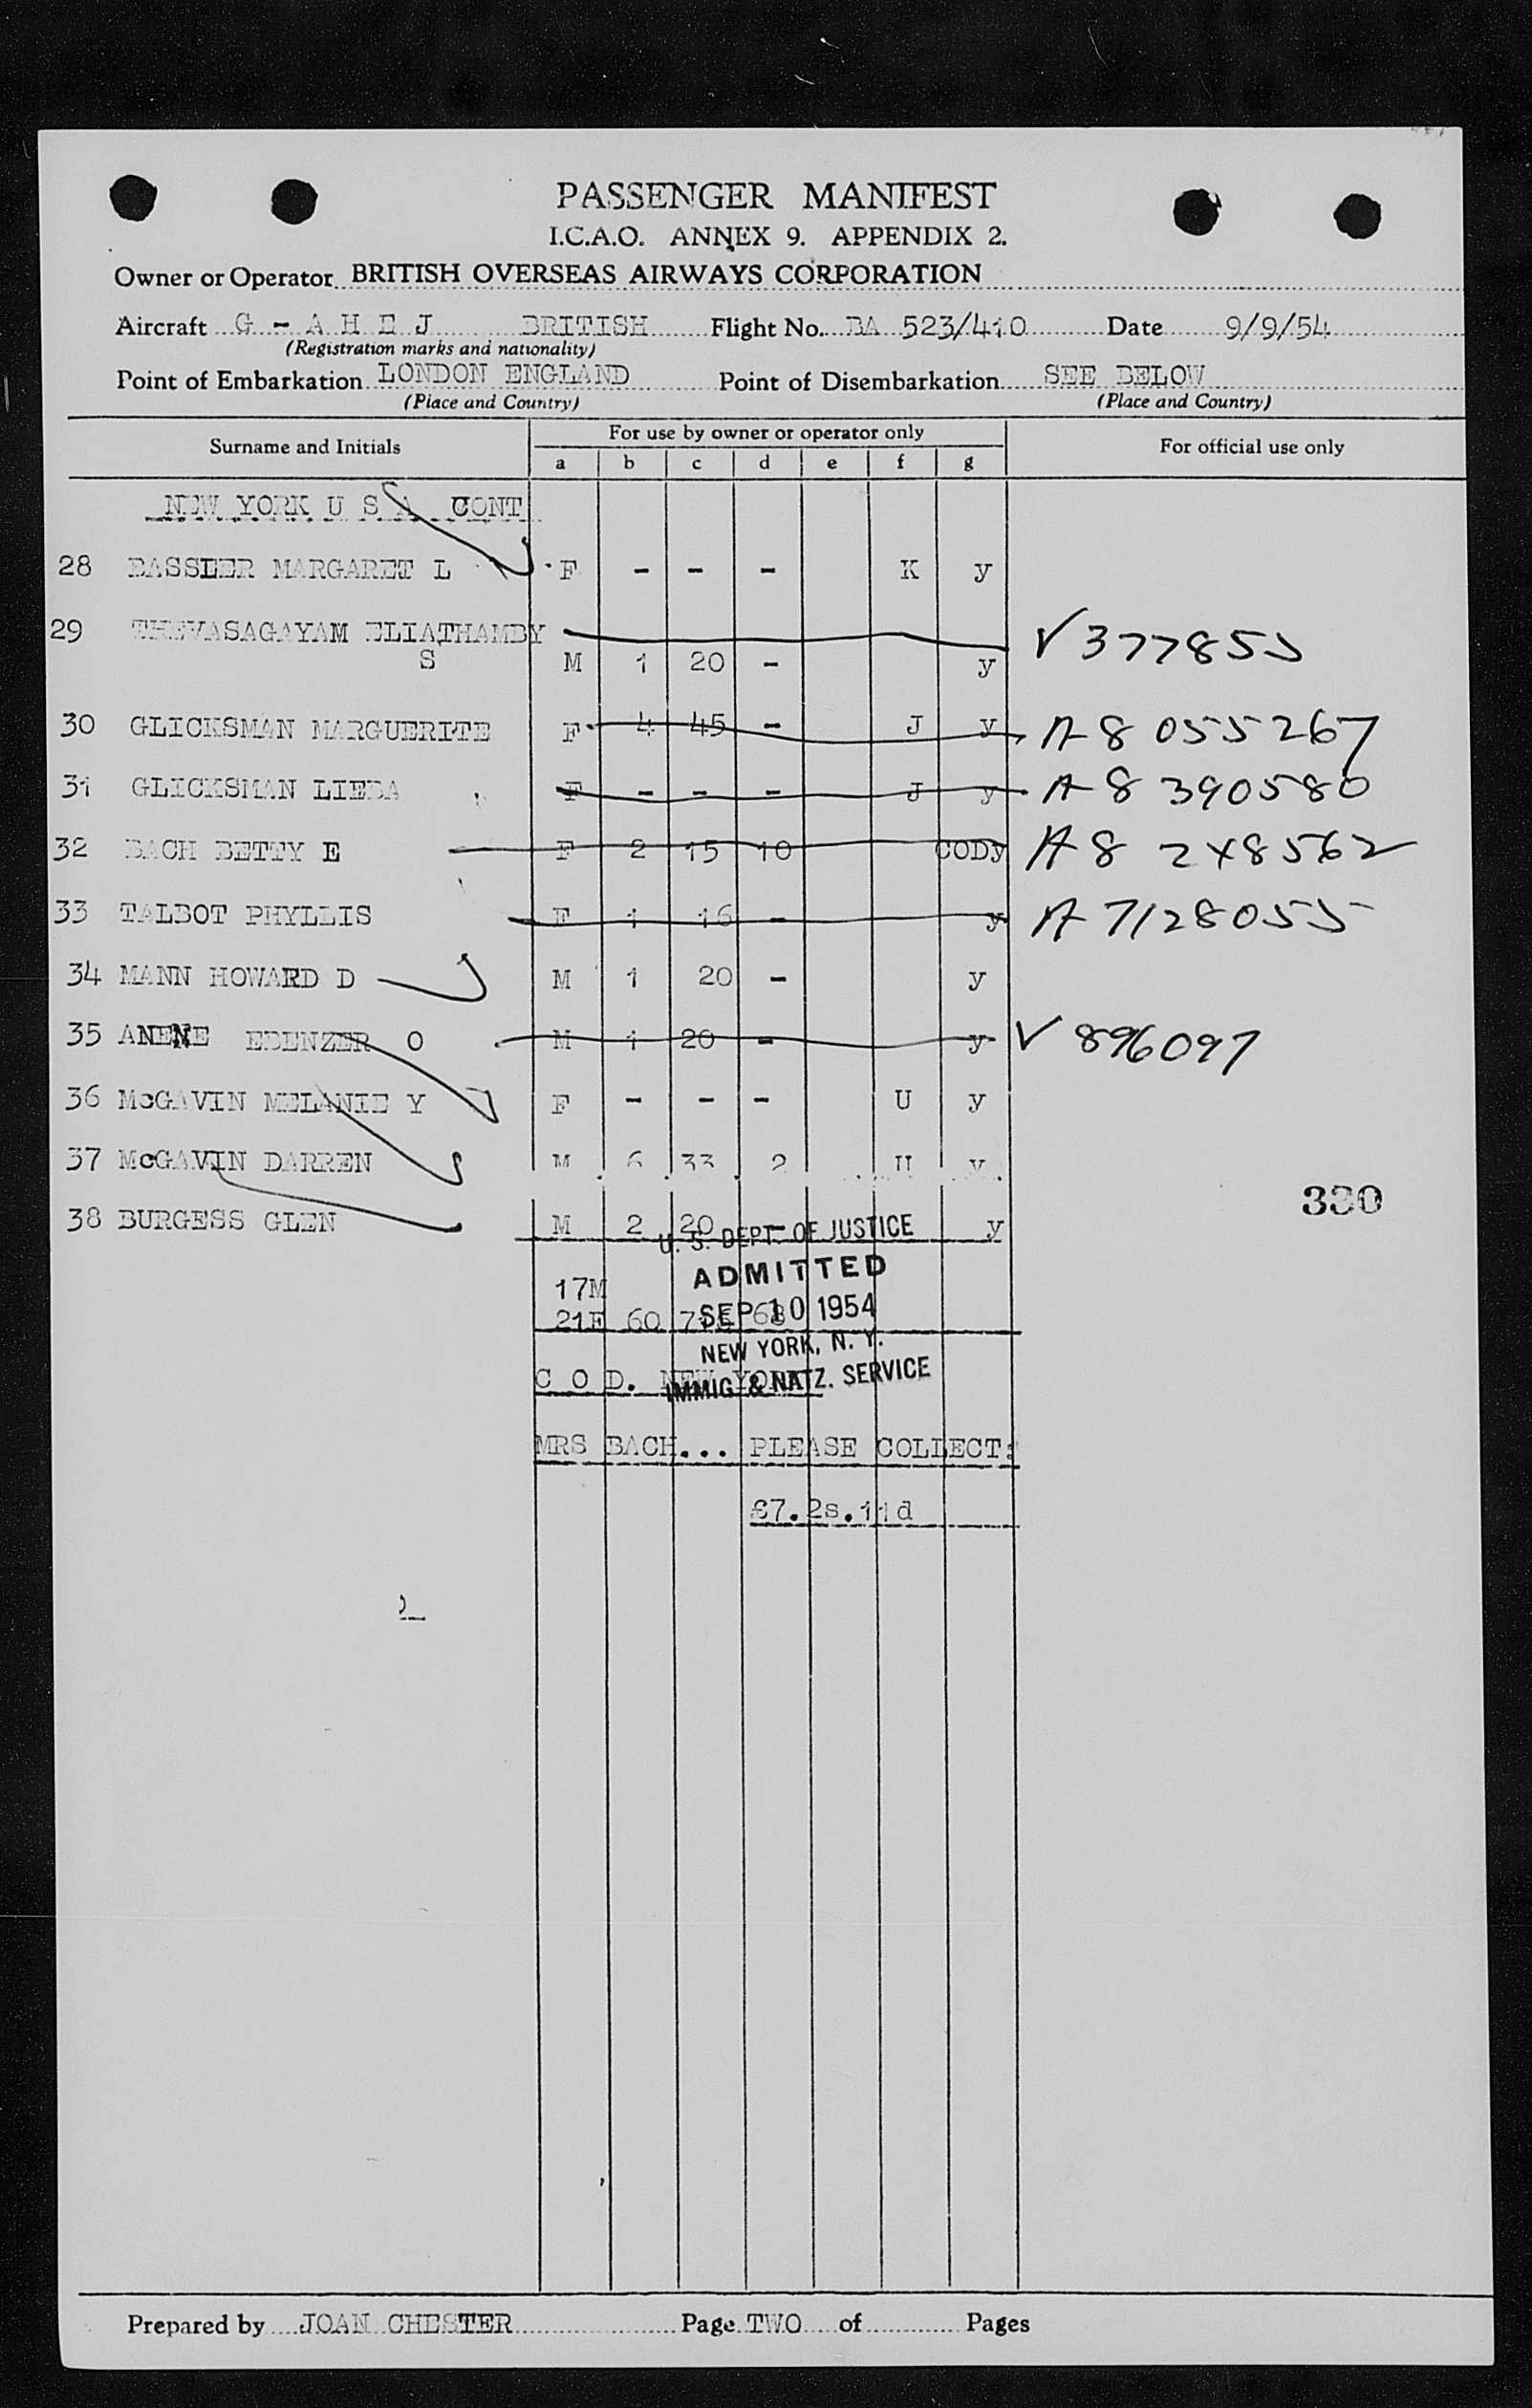 PASSENGER MANIFEST
I.C.A.O. ANNEX 9. APPENDIX 2.
Owner or Operator BRITISH OVERSEAS AIRWAYS CORPORATION
Aircraft G - A H E J BRITISH Flight No. BA 523/410 Date 9/9/54
(Registration marks and nationality)
Point of Embarkation LONDON ENGLAND Point of Disembarkation SEE BELOW
(Place and Country) (Place and Country)
Surname and Initials For use by owner or operator only For official use only
a b c d e f g
NEW YORK U S A CONT
28 BASSLER MARGARET L F - - - K y
29 THEVASAGAYAM ELIATHAMBY
S M 1 20 - y V 377855
30 GLICKSMAN MARGUERITE F 4 45 - J y A8 055267
31 GLICKSMAN LIEBA F - - - J y A8 390580
32 BACH BETTY E F 2 15 10 CODy A8 248562
33 TALBOT PHYLLIS F 1 16 - y A7128055
34 MANN HOWARD D M 1 20 - y
35 ANENE EDENZER O M 1 20 - y V 896097
36 McGAVIN MELANIE Y F - - - U y
37 McGAVIN DARREN M 6 33 2 U y
330
38 BURGESS GLEN M 2 20 - y
U. S. DEPT. OF JUSTICE
ADMITTED
17M
SEP 10 1954
21F 60
NEW YORK, N. Y.
C O D. NEW YORK
IMMIG. & NATZ. SERVICE
MRS BACH... PLEASE COLLECT:
£7.2s.11d
Prepared by JOAN CHESTER Page TWO of Pages